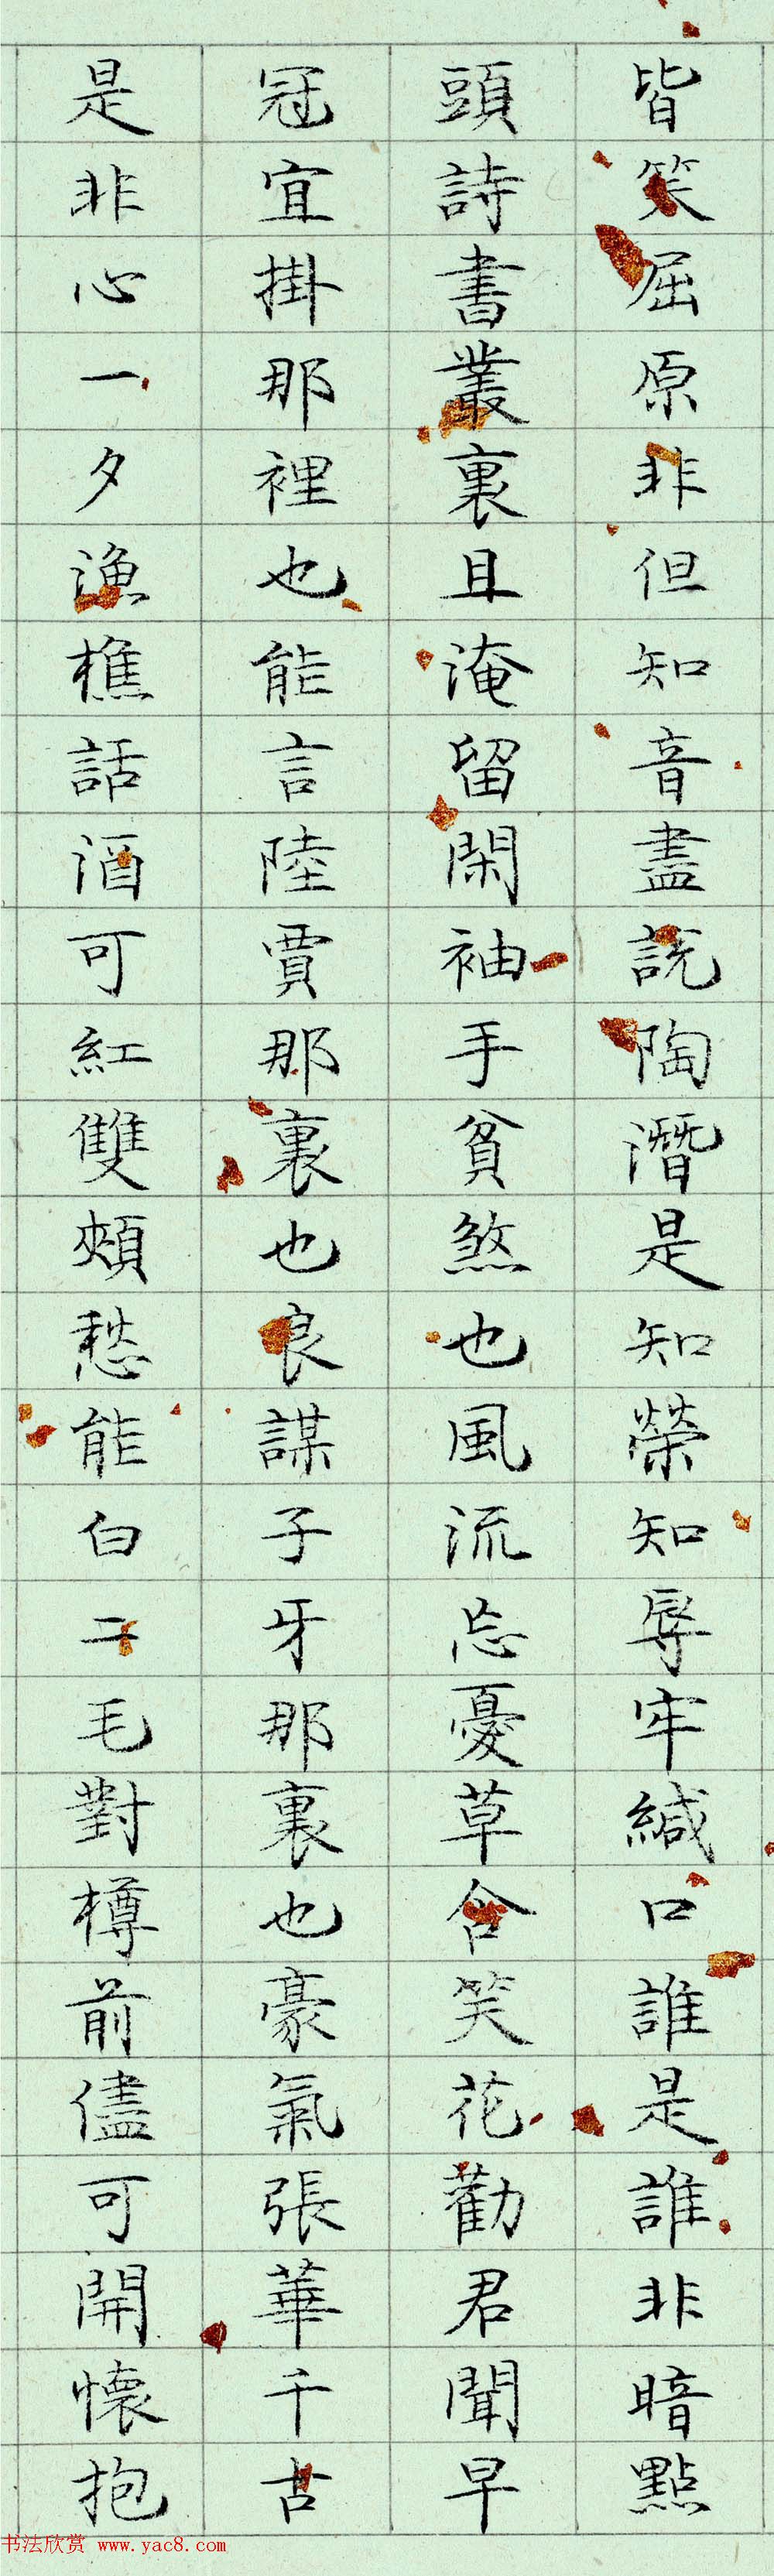 皆笑屈原非但知音盡說陶潛是知榮知辱牢緘口誰是誰非暗點
頭詩書叢裏且淹留閑袖手貧煞也風流忘憂草含笑花勸君聞早
冠宜掛那裡也能言陸賈那裏也良謀子牙那裏也豪氣張華千古
是非心一夕漁樵話酒可紅雙頰愁能白二毛對樽前儘可開懷抱
书法欣赏 www.yac8.com